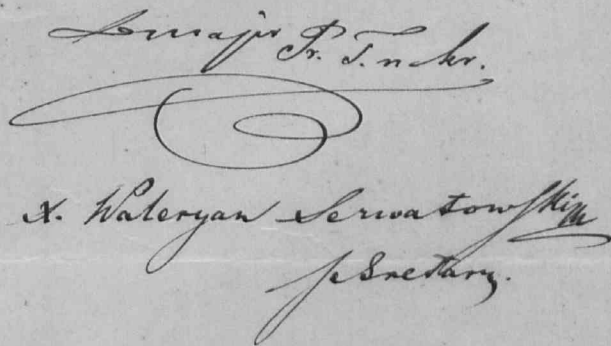 Pr. T. n kr.
X. Waleryan Serwatowski
Sekretarz.